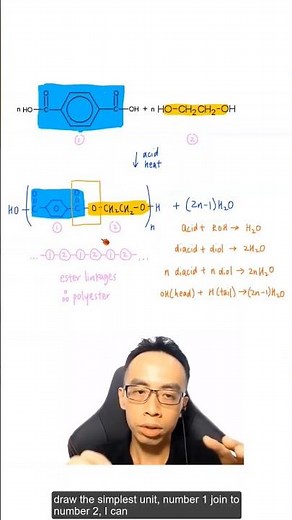 n HO-C(=O)-C(=O)-OH + n HO-CH₂CH₂-OH
① ②
↓ acid
heat
HO-(C(=O)-C(=O)-O-CH₂CH₂-O)n-H + (2n-1)H₂O
① ②
acid + ROH → H₂O
...-①-②-①-②-①-②-...
diacid + diol → 2H₂O
ester linkages
n diacid + n diol → 2nH₂O
∴ polyester
OH(head) + H(tail) → (2n-1)H₂O
draw the simplest unit, number 1 join to
number 2, I can